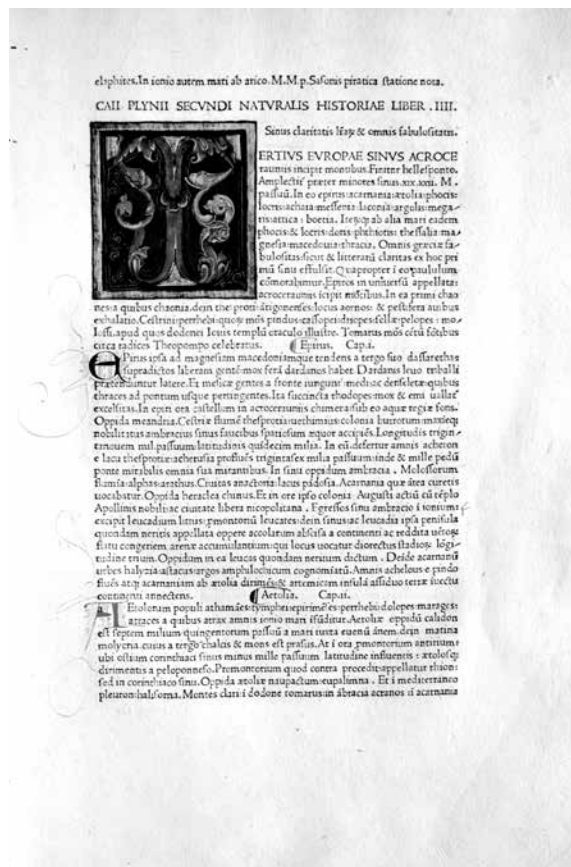 elaphites. In ionio autem mari ab orico. M. M. p. Sasonis piratica statione nota.
CAII PLYNII SECVNDI NATVRALIS HISTORIAE LIBER .IIII.
Sinus claritatis & omnis fabulositatis.
ERTIVS EVROPAE SINVS ACROCE
raunus incipit montibus. Finitur hellesponto.
Amplectit præter minores sinus .xix. xxii. M.
passuũ. In eo epirus: acarnania: ætolia: phocis:
locris: achaia: messenia: laconia: argolis: mega
ris: attica: boetia. ab alia mari eadem
phocis: & locris: doris: phthiotis: thessalia: ma
gnesia: macedonia: thracia. Omnis græciæ fa
bulositas: sicut & litterarũ claritas ex hoc pri
mũ sinu effulsit. Quapropter i eo paululum
cõmorabimur. Epiros in universũ appellata:
acrocerauniis icipit mõtibus. In ea primi chao
nes: a quibus chaonia. dein the
exhalatio. Cestrini: perrhebi: quoȝ mõs pindus: cassopei: driopes: sellæ: pelopes: mo
lossi. apud quos dodonei Iovis templũ oraculo illustre. Tomarus mõs cẽtũ fõtibus
circa radices Theopompo celebratus. Epirus. Cap.i.
EPirus ipsa ad magnesiam macedoniamque tendens a tergo suo dassarethas
supradictos liberam gentẽ: mox ferã dardanos habet. Dardanis levo triballi
prætenduntur latere. Et mesicæ gentes a fronte iungunt̃ medicæ: denseletæ: quibus
thraces ad pontum usque pertingentes. Ita succincta rhodopes: mox & emi uallat̃
excelsitas. In epiri ora castellum in acrocerauniis chimera: sub eo aquæ regiæ fons.
Oppida meandria. Cestriæ flumẽ thesprotiæ: uethimius: colonia butrotum: maxieq;
nobilitatus ambracius sinus faucibus spatiosum æquor accipiẽs. Longitudis trigin
tanouem mil. passuum: latitudinis quidecim milia. In eũ defertur amnis acheron
e lacu thesprotiæ acherusia profluẽs trigintasex milia passuum: inde & mille pedũ
ponte mirabilis omnia sua mirantibus. In sinu oppidum ambracia. Molossorum
flumia: alphas: arathus. Civitas anactoria: lacus pãdosia. Acarnania quæ ãtea curetis
uocabatur. Oppida heraclea chinus. Et in ore ipso colonia Augusti actiũ cũ tẽplo
Apollinis nobili: ac civitate libera nicopolitana. Egressos sinu ambracio i ionium
excipit leucadium litus: pmontoriũ leucates: dein sinus: ac leucadia ipsa penisula
quondam neritis appellata oppere accolarum abscisa a continenti ac reddita
flatu congeriem arenæ accumulantium: qui locus uocatur diorectus stadioȝ lõgi
tudine trium. Oppidum in ea leucas quondam neritum dictum. Deide acarnanũ
urbes halyzia: astacus: argos amphilochicum cognomiatũ. Amnis achelous e pindo
fluẽs atq; acarnaniam ab ætolia dirimẽs: & artemicam insulã assiduo terræ ivectu
continenti annectens. Aetolia. Cap.ii.
AEtolorum populi athamães: tymphei: epirimẽes: perrhebi: dolopes: marages:
attaces a quibus atrax amnis ionio mari ifũditur. Aetoliæ oppidũ calidon
est septem milium quingentorum passuũ a mari iuxta euenũ ãnem. dein matina
molycria. cuius a tergo chalcis & mons est prasus. At i ora pmontorium antirium:
ubi ostium corinthiaci sinus minus mille passuum latitudine influentis: ætolosq;
dirimentis a peloponneso. Premontorium quod contra procedit: appellatur rhion:
sed in corinthiaco sinu. Oppida ætoliæ naupactum: eupalimna. Et i mediterraneo
pleuron: halisorna. Montes clari i dodone tomarus: in ãbracia acranos: i acarnania